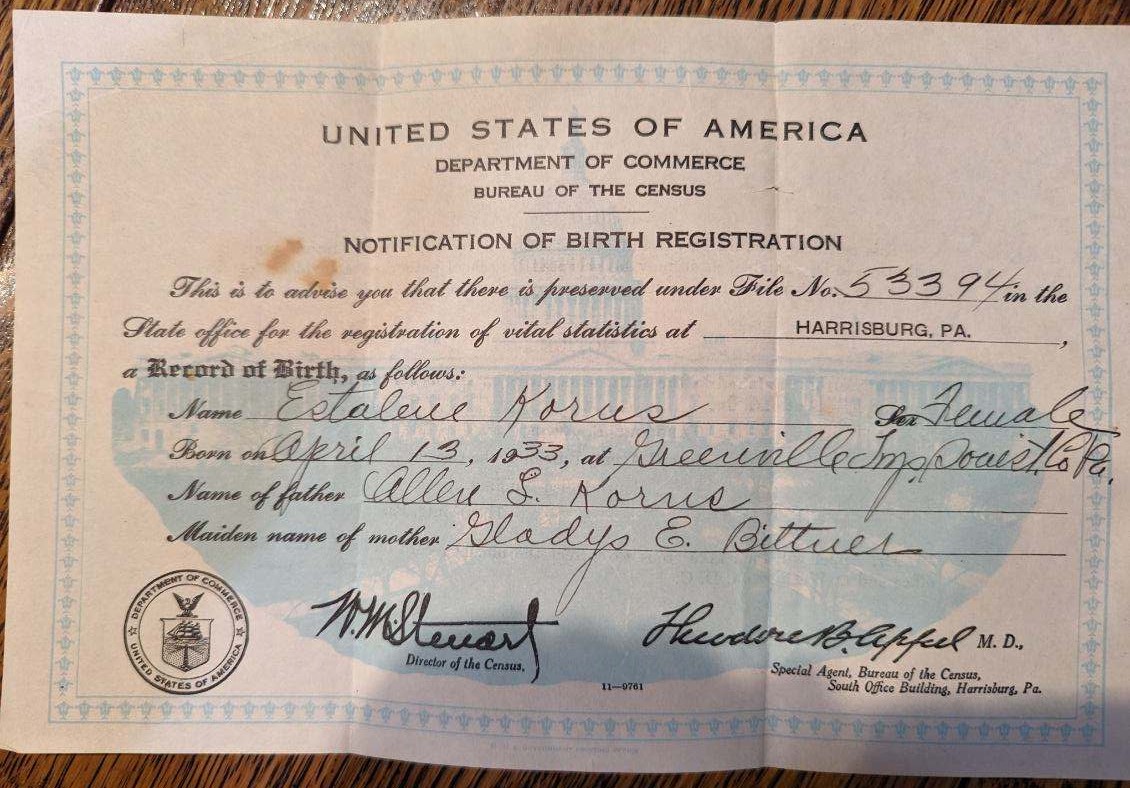 UNITED STATES OF AMERICA
DEPARTMENT OF COMMERCE
BUREAU OF THE CENSUS
NOTIFICATION OF BIRTH REGISTRATION
This is to advise you that there is preserved under File No. 53394 in the
State office for the registration of vital statistics at HARRISBURG, PA. ,
a Record of Birth, as follows:
Name Estalene Korns Sex Female
Born on April 13, 1933, at Greenville Twp. Somerset Co Pa.
Name of father Allen L. Korns
Maiden name of mother Gladys E. Bittner
DEPARTMENT OF COMMERCE
UNITED STATES OF AMERICA
W. M. Steuart
Director of the Census.
Theodore B. Appel M. D.,
Special Agent, Bureau of the Census,
South Office Building, Harrisburg, Pa.
11—9761